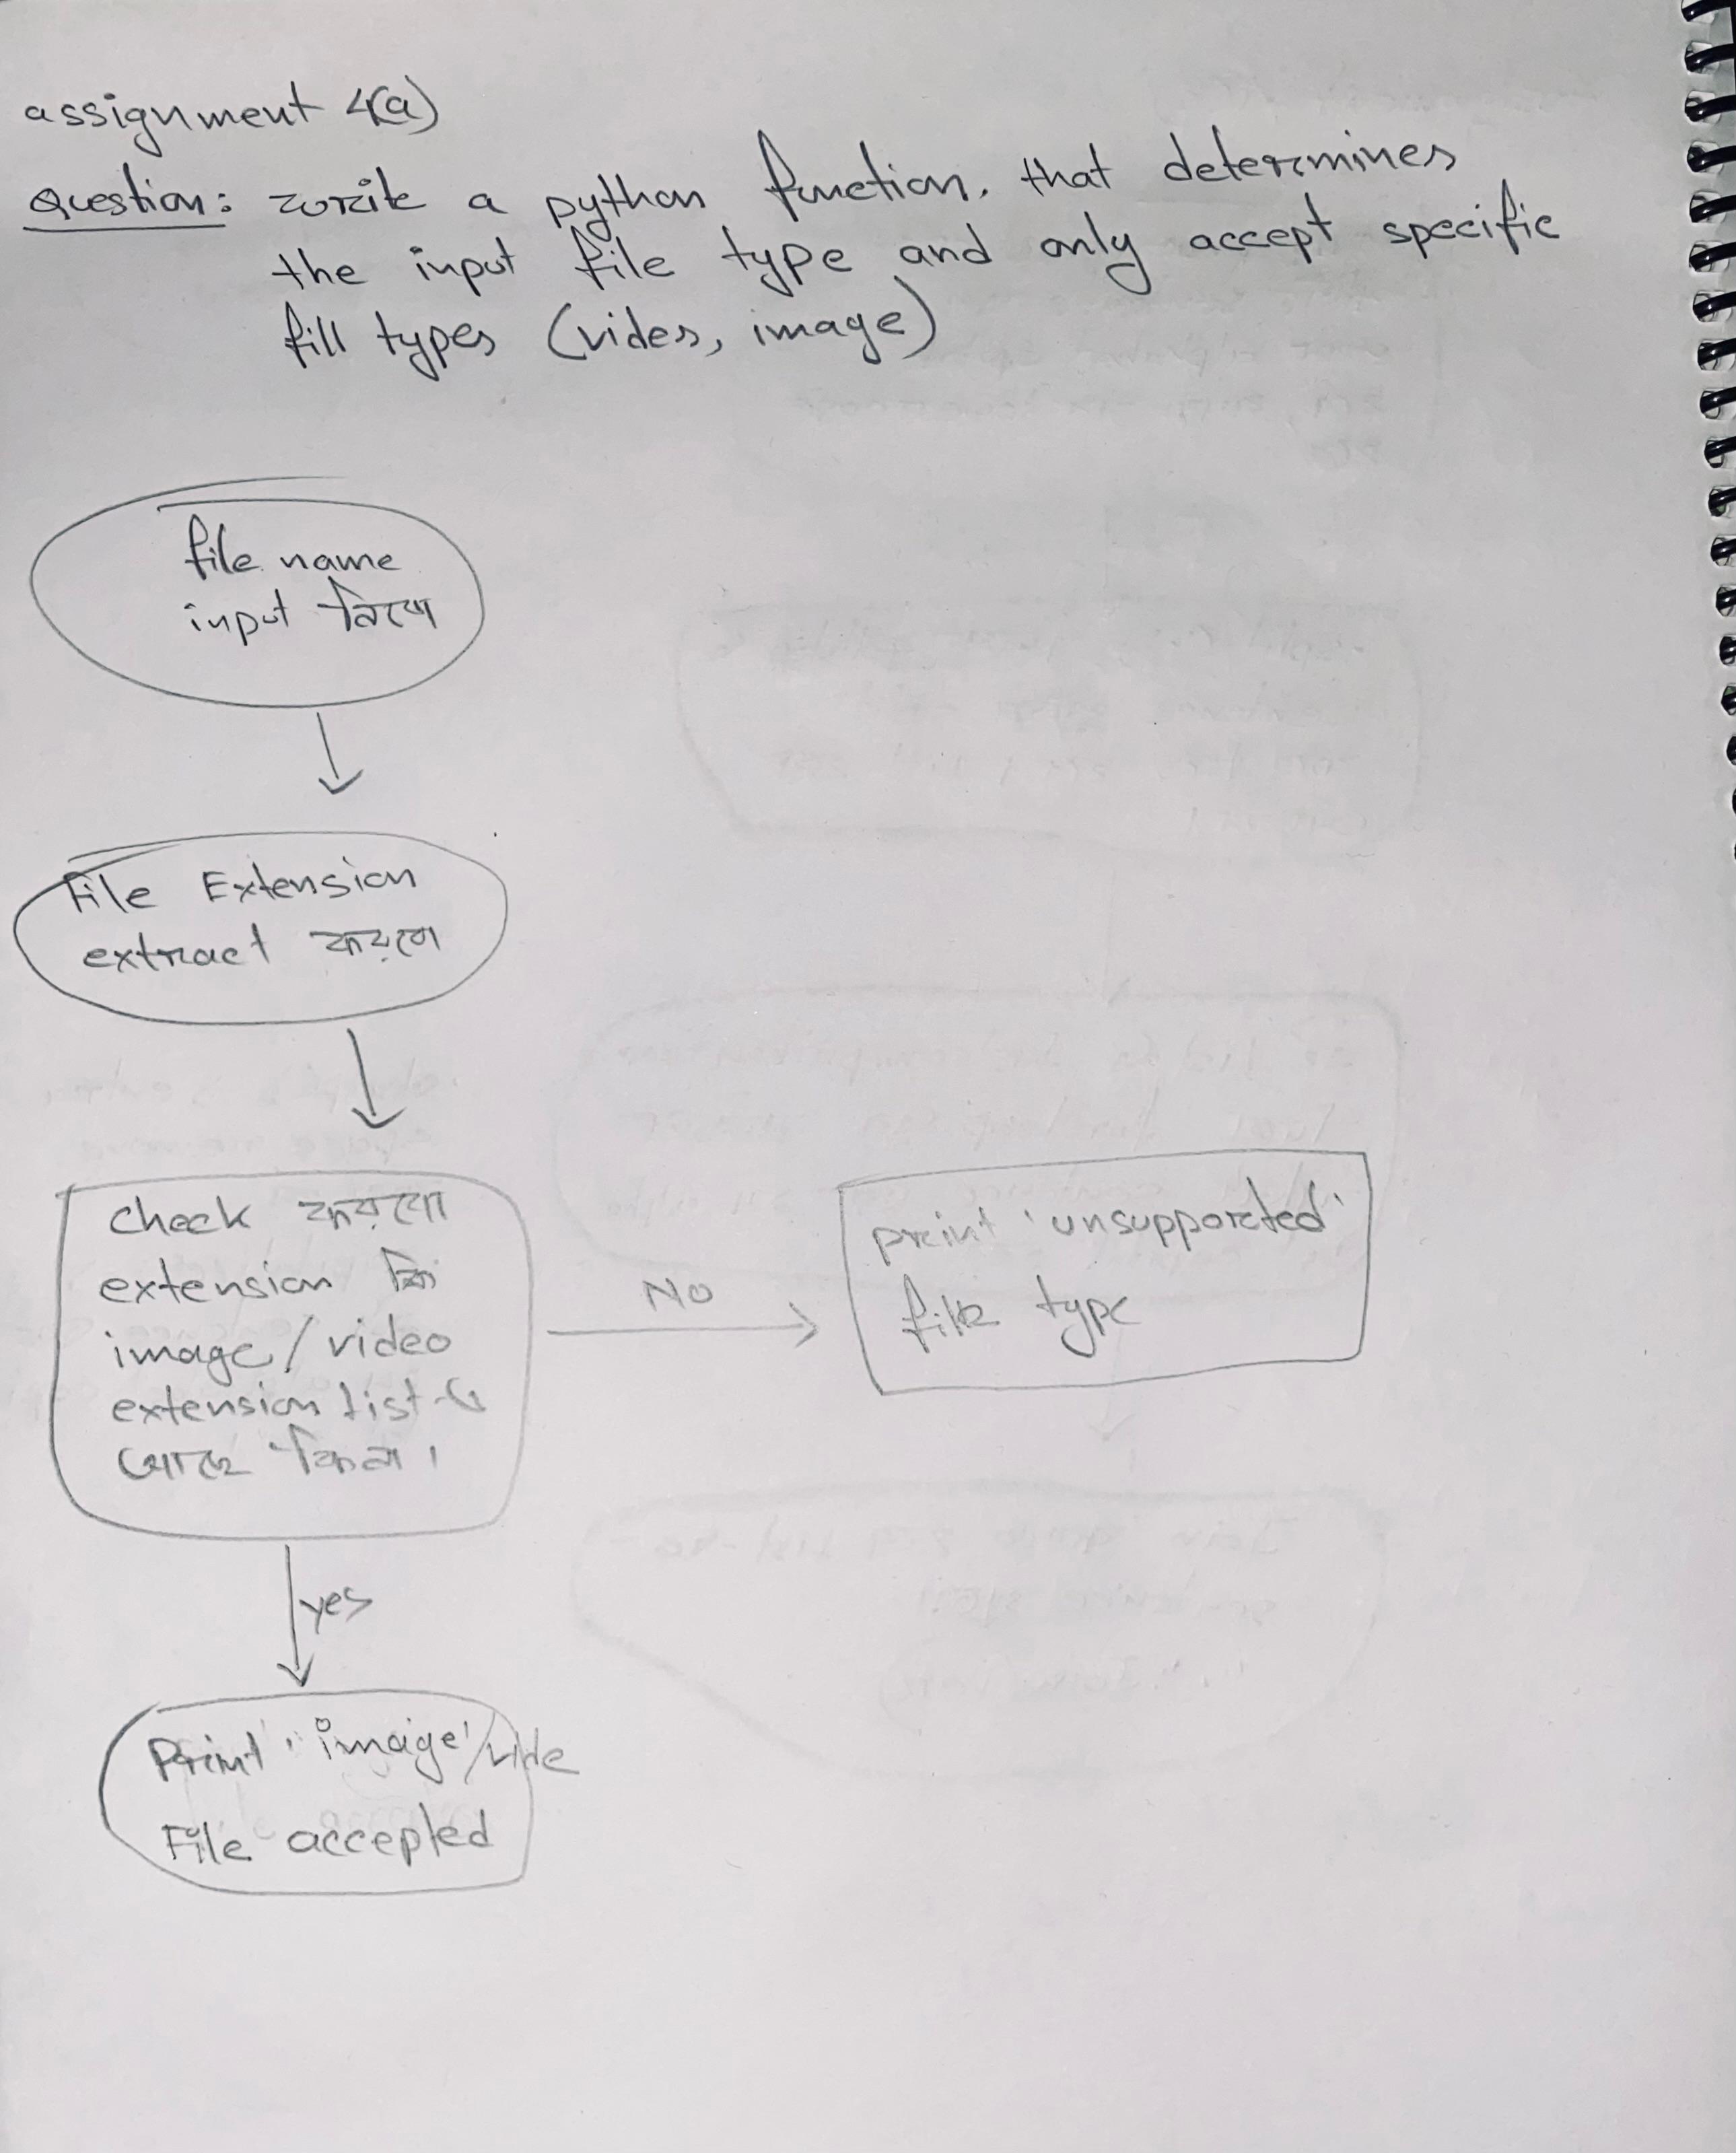 assignment 4(a)
Question: write a python function, that determines
the input file type and only accept specific
fill types (video, image)
file name
input নিবো
File Extension
extract করবো
check করবো
extension কি
image/video
extension list-এ
আছে কিনা।
No
print 'unsupported'
file type
yes
Print 'image'/vide
File accepted